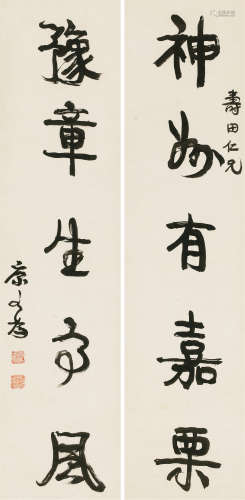 神州有嘉栗
壽田仁兄
豫章生高風
康有為